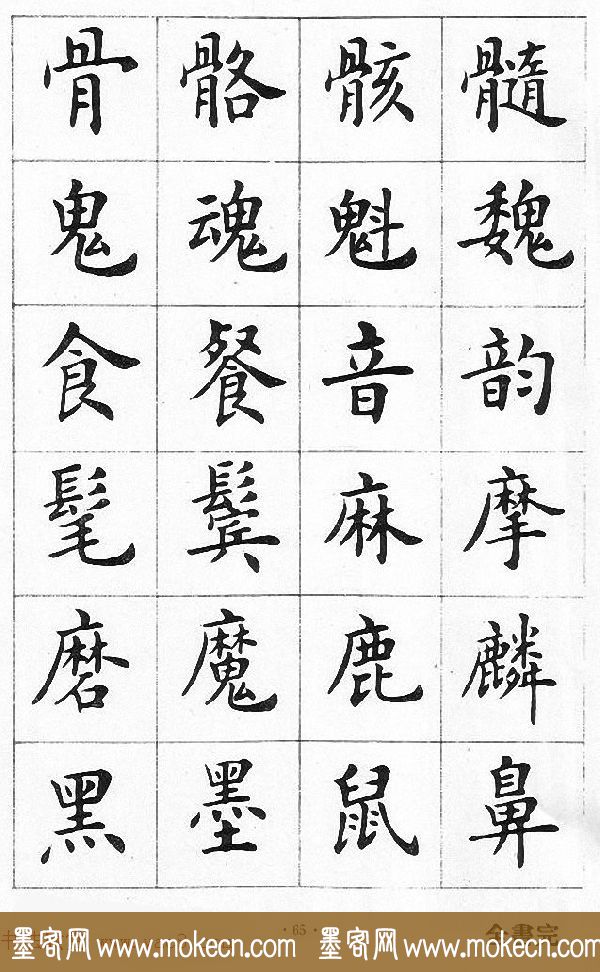 骨 骼 骸 髓
鬼 魂 魁 魏
食 餐 音 韵
髦 鬓 麻 摩
磨 魔 鹿 麟
黑 墨 鼠 鼻
·65·
全書完
墨客网 www.mokecn.com 墨客网 www.mokecn.com